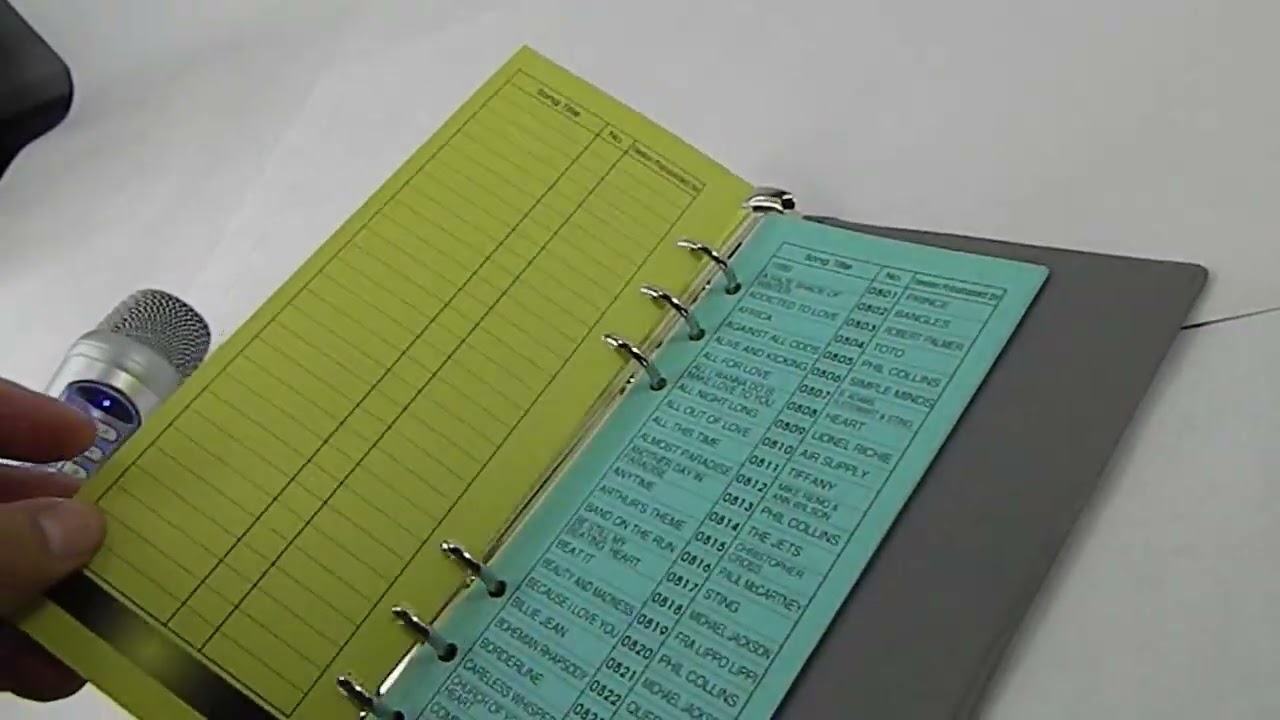 Song Title No.
Song Title No.
1999 0801 PRINCE
A HAZY SHADE OF WINTER 0802 BANGLES
ADDICTED TO LOVE 0803 ROBERT PALMER
AFRICA 0804 TOTO
AGAINST ALL ODDS 0805 PHIL COLLINS
ALIVE AND KICKING 0806 SIMPLE MINDS
ALL FOR LOVE 0807 B. ADAMS, R. STEWART & STING
ALL I WANNA DO IS MAKE LOVE TO YOU 0808 HEART
ALL NIGHT LONG 0809 LIONEL RICHIE
ALL OUT OF LOVE 0810 AIR SUPPLY
ALL THIS TIME 0811 TIFFANY
ALMOST PARADISE 0812 MIKE RENO & ANN WILSON
ANOTHER DAY IN PARADISE 0813 PHIL COLLINS
ANYTIME 0814 THE JETS
ARTHUR'S THEME 0815 CHRISTOPHER CROSS
BAND ON THE RUN 0816 PAUL McCARTNEY
BE STILL MY BEATING HEART 0817 STING
BEAT IT 0818 MICHAEL JACKSON
BEAUTY AND MADNESS 0819 FRA LIPPO LIPPI
BECAUSE I LOVE YOU 0820 PHIL COLLINS
BILLIE JEAN 0821 MICHAEL JACKSO
BOHEMIAN RHAPSODY 0822 QUEE
BORDERLINE
CARELESS WHISPER
CHURCH OF YO HEART